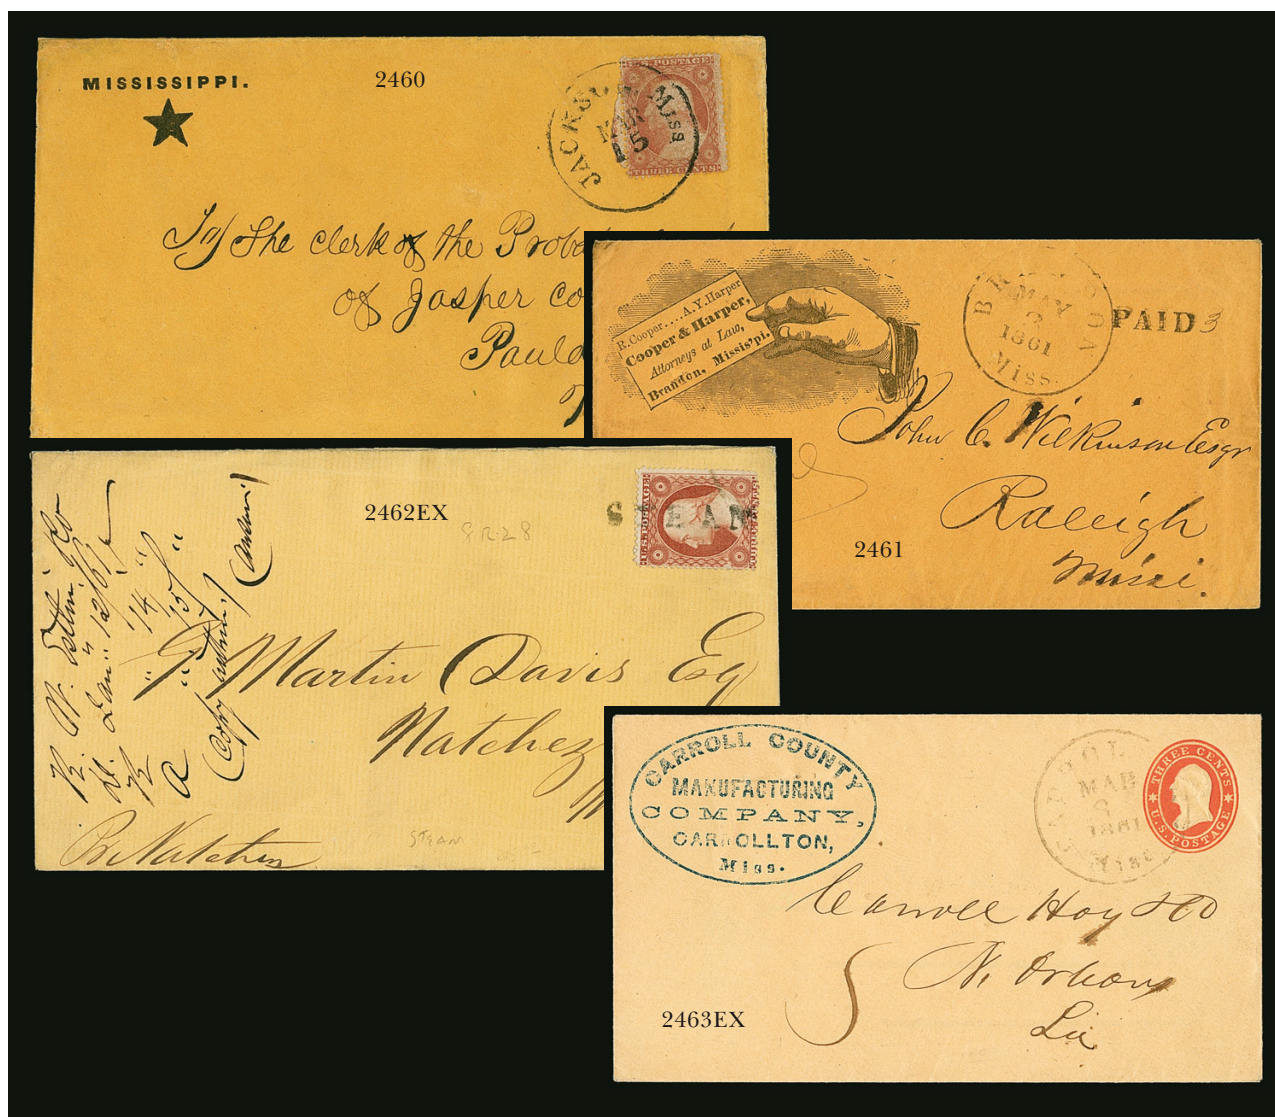 MISSISSIPPI.
2460
JACKSON Miss
MAR
15
U.S. POSTAGE
THREE CENTS
To/ The clerk of the Proba
of Jasper co
Pauld
R. Cooper....A.Y. Harper
Cooper & Harper,
Attorneys at Law,
Brandon, Missis'pi.
BRANDON
MAY
3
1861
Miss.
PAID 3
John C. Wilkinson Esqr
Raleigh
Missi.
2461
2462EX
8R28
STEAM
U.S. POSTAGE
THREE CENTS
Martin Davis Esq
Natchez
Pr Natchez
STEAM
12/61
"14"
"15/"
a
CARROLL COUNTY
MANUFACTURING
COMPANY,
CARROLLTON,
Miss.
MAR
1861
Miss
THREE CENTS
U.S. POSTAGE
Carroll Hoy & Co
N. Orleans
La
2463EX